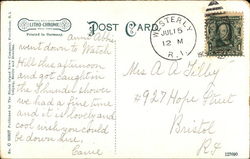 LITHO-CHROME
Printed in Germany
POST CARD
WESTERLY
JUL 15
12 M
R.I.
went down to Watch
Hill this afternoon
and got caught in
a thunder shower
we had a fine time
and it is lovely and
cool wish you could
be down line,
Carrie
Mrs A A Tilley
#927 Hope Street
Bristol
R I